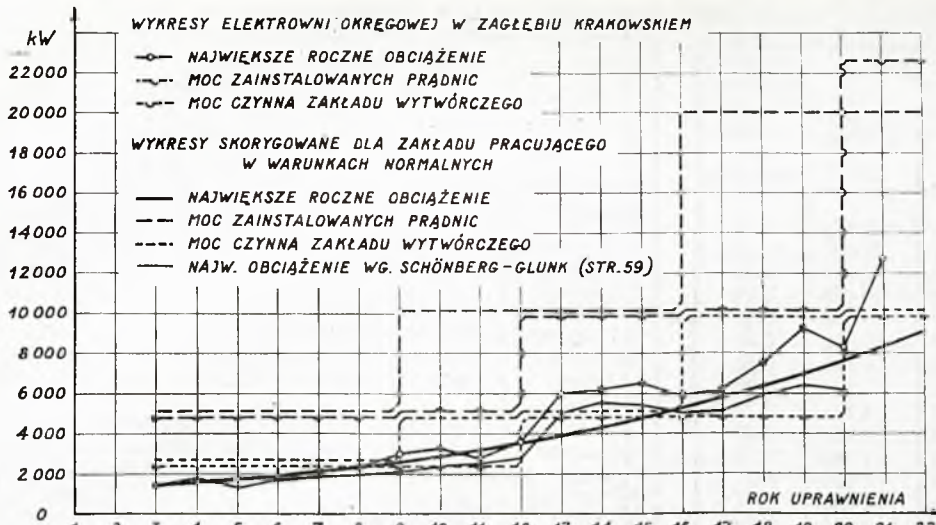 WYKRESY ELEKTROWNI OKRĘGOWEJ W ZAGŁĘBIU KRAKOWSKIEM
kW
NAJWIĘKSZE ROCZNE OBCIĄŻENIE
MOC ZAINSTALOWANYCH PRĄDNIC
MOC CZYNNA ZAKŁADU WYTWÓRCZEGO
WYKRESY SKORYGOWANE DLA ZAKŁADU PRACUJĄCEGO
W WARUNKACH NORMALNYCH
NAJWIĘKSZE ROCZNE OBCIĄŻENIE
MOC ZAINSTALOWANYCH PRĄDNIC
MOC CZYNNA ZAKŁADU WYTWÓRCZEGO
NAJW. OBCIĄŻENIE WG. SCHÖNBERG-GLUNK (STR.59)
22000
20000
18000
16000
14000
12000
10000
8000
6000
4000
2000
0
ROK UPRAWNIENIA